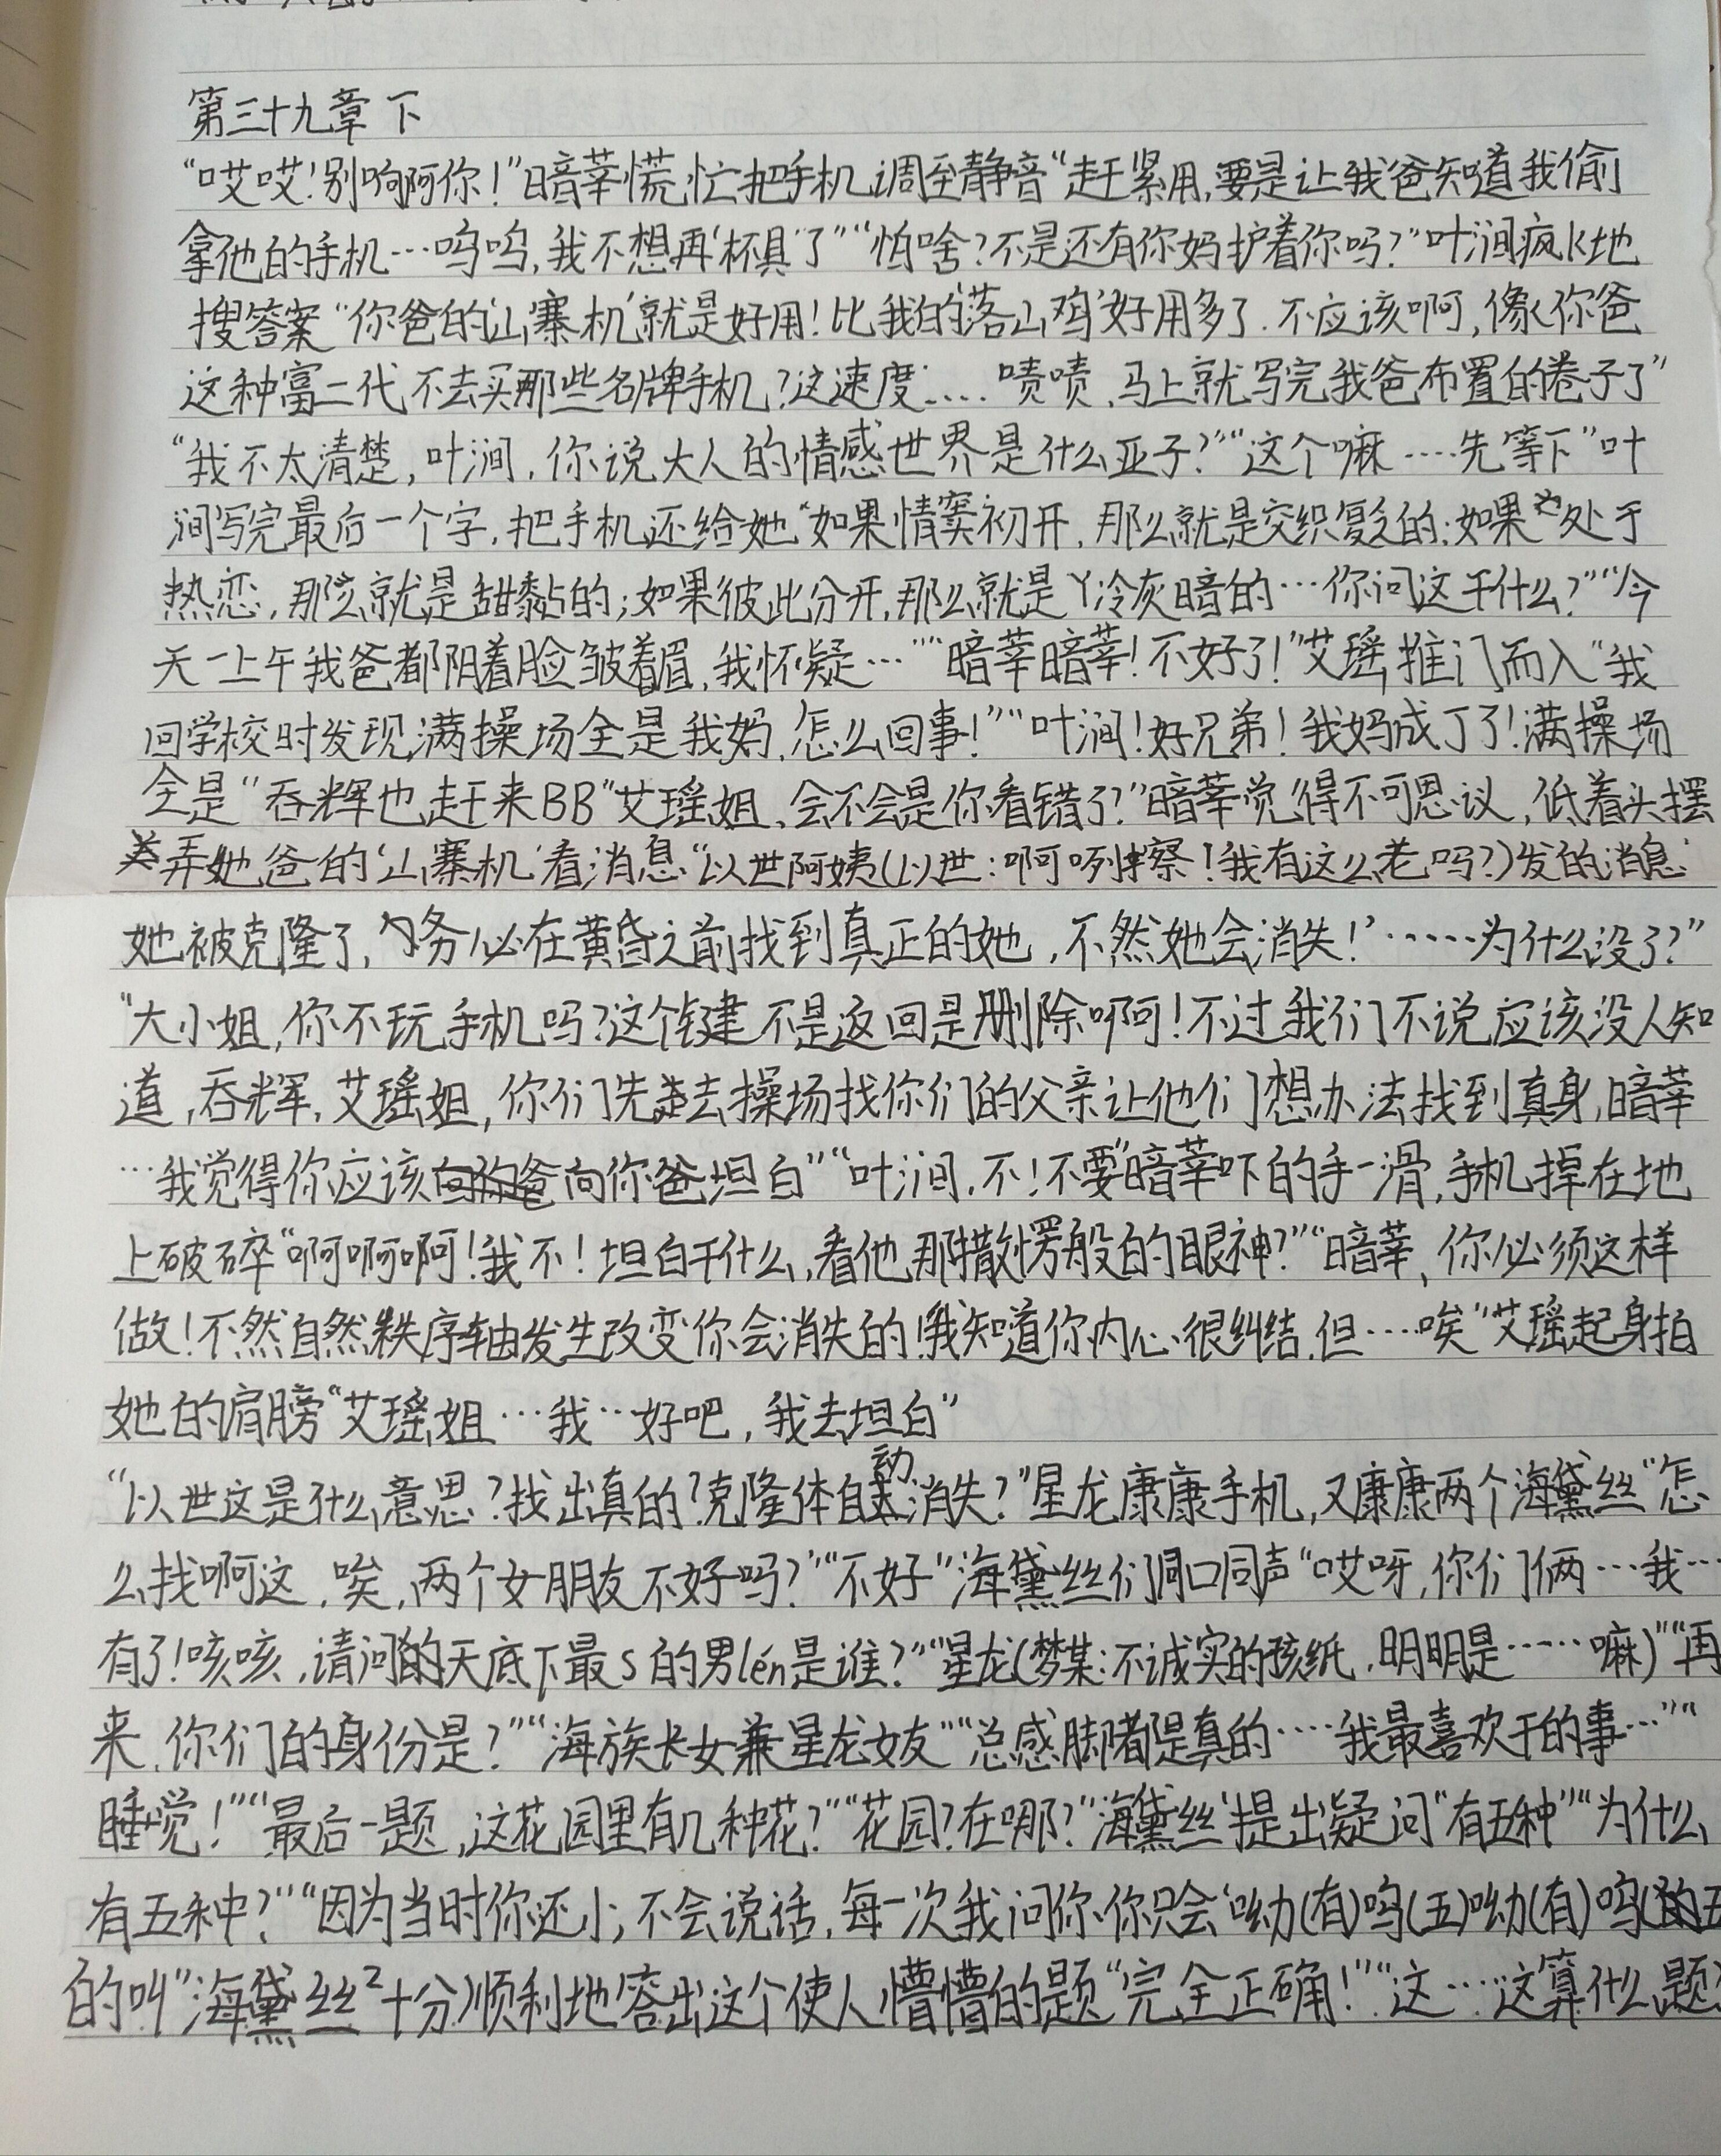 第三十九章 下
“哎哎！别响啊你！”暗莘慌忙把手机调至静音“赶紧用，要是让我爸知道我偷
拿他的手机…呜呜，我不想再‘杯具’了”“怕啥？不是还有你妈护着你吗？”叶涧疯k地
搜答案“你爸的‘山寨机’就是好用！比我的‘落山鸡’好用多了．不应该啊，像你爸
这种富二代不去买那些名牌手机？这速度….. 啧啧，马上就写完我爸布置的卷子了”
“我不太清楚，叶涧，你说大人的‘情感’世界是什么亚子？”“这个嘛….先等下”叶
涧写完最后一个字，把手机还给她“如果情窦初开，那么就是交织复杂的；如果处于
热恋，那么就是甜黏的；如果彼此分开，那么就是丫冷灰暗的…你问这干什么？”“今
天一上午我爸都阴着脸皱着眉，我怀疑…”“暗莘暗莘！不好了！”艾瑶推门而入“我
回学校时发现满操场全是我妈，怎么回事！”“叶涧！好兄弟！我妈成丁了！满操场
全是”吞辉也赶来BB“艾瑶姐，会不会是你看错了？”暗莘觉得不可思议，低着头摆
弄她爸的‘山寨机’看消息“以世阿姨（以世：啊咧嚓！我有这么老吗？）发的消息‘
她被克隆了，务必在黄昏之前找到真正的她，不然她会消失！’……为什么没了？”
“大小姐，你不玩手机吗？这个键不是返回是删除啊！不过我们不说应该没人知
道，吞辉，艾瑶姐，你们先去操场找你们的父亲让他们想办法找到真身，暗莘
…我觉得你应该向你爸坦白”“叶涧，不！不要”暗莘吓的手一滑，手机掉在地
上破碎“啊啊啊！我不！坦白干什么，看他那撒愣般的眼神？”“暗莘，你必须这样
做！不然自然秩序轴发生改变你会消失的！我知道你内心很纠结，但….唉”艾瑶起身拍
她的肩膀“艾瑶姐…我…好吧，我去坦白”
“以世这是什么意思？找出真的？克隆体自动消失？”星龙康康手机，又康康两个海黛丝“怎
么找啊这，唉，两个女朋友不好吗？”“不好”海黛丝们异口同声“哎呀，你们俩…我…
有了！咳咳，请问天底下最S的男lén是谁？”“星龙（梦某：不诚实的孩纸，明明是……嘛）”“再
来，你们的身份是？”“海族长女兼星龙女友”“总感脚都是真的….我最喜欢干的事…”“
睡觉！”“最后一题，这花园里有几种花？”“花园？在哪？”海黛丝'提出疑问“有五种”“为什么
有五种？”“因为当时你还小，不会说话，每一次我问你你只会‘呦（有）呜（五）呦（有）呜（五
的叫”海黛丝²十分顺利地答出这个使人懵懵的题“完全正确！”“这….这算什么题